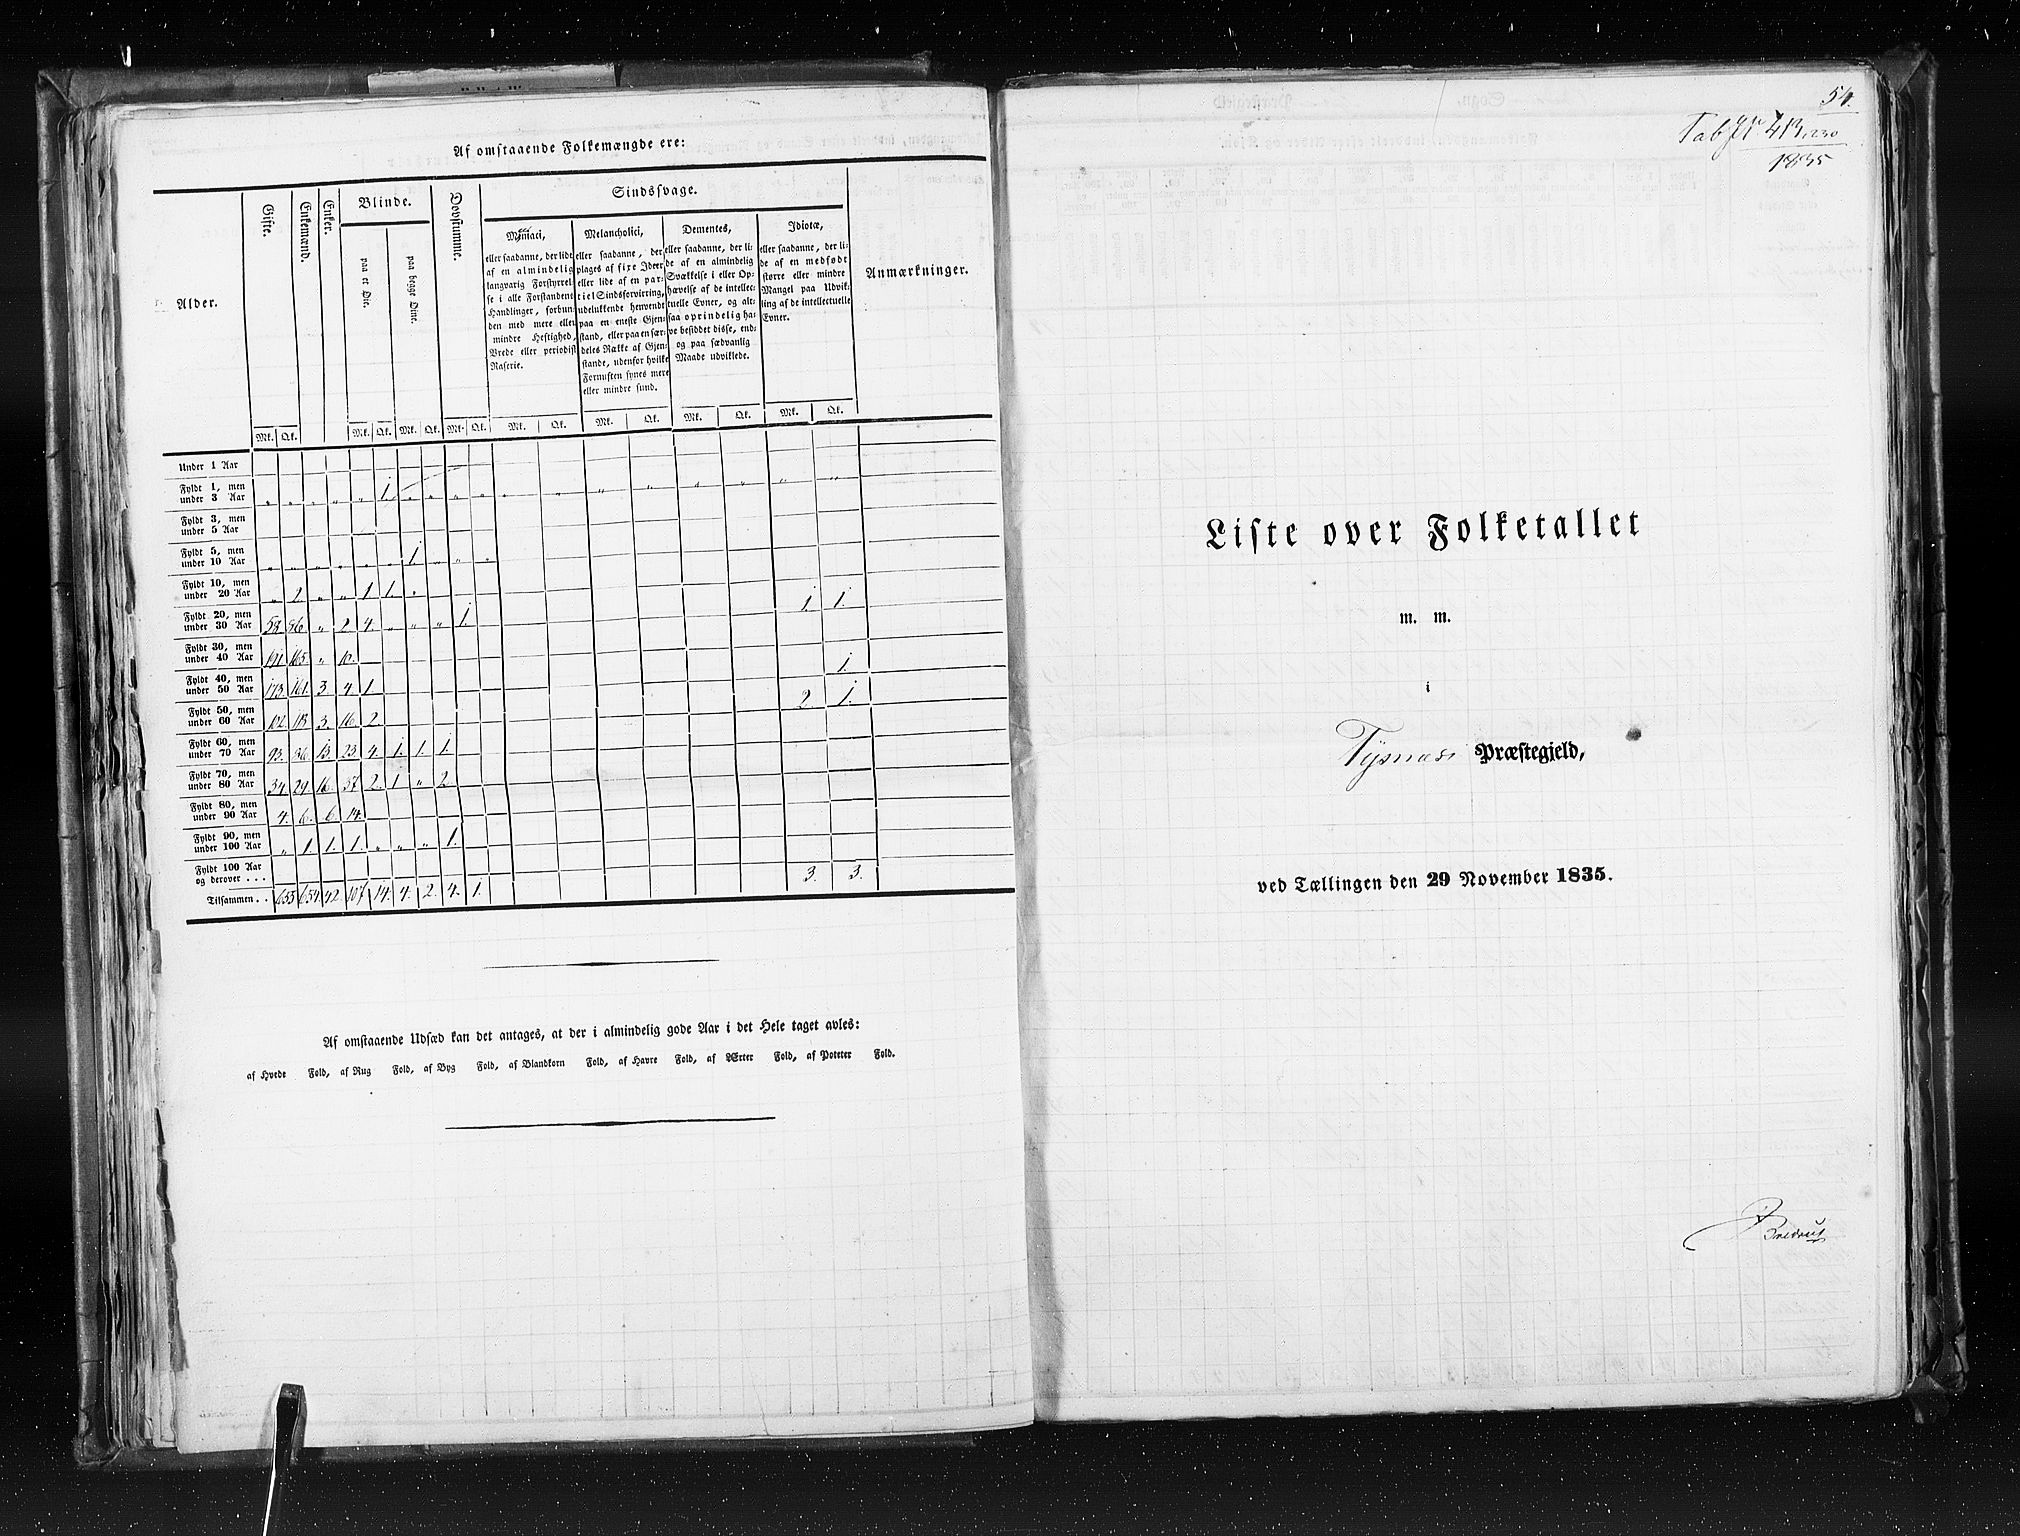 Af omstaaende Folkemængde ere:
Alder.
Gifte.
Enkemænd.
Enker.
Blinde.
paa et Øie.
paa begge Øine.
Døvstumme.
Sindssvage.
Maniaci,
eller saadanne, der lide
af en almindelig
langvarig Forstyrrel-
se i alle Forstandens
Handlinger, forbun-
den med mere eller
mindre Heftighed,
Vrede eller periodisk
Raserie.
Melancholici,
eller saadanne, der
plages af fixe Ideer
eller lide af en par-
tiel Sindsforvirring,
udelukkende henvendt
paa en eneste Gjen-
stand, eller paa en sær-
deles Række af Gjen-
stande, udenfor hvilke
Fornuften synes mere
eller mindre sund.
Dementes,
eller saadanne, der li-
de af en almindelig
Svækkelse i eller Op-
hævelse af de intellec-
tuelle Evner, og alt-
saa oprindelig ha-
ve besiddet disse, end-
og paa sædvanlig
Maade udviklede.
Idiotæ,
eller saadanne, der li-
de af en medfødt
større eller mindre
Mangel paa Udvik-
ling af de intellectuelle
Evner.
Anmærkninger.
Mk. Qk. Mk. Qk. Mk. Qk. Mk. Qk. Mk. Qk. Mk. Qk. Mk. Qk. Mk. Qk.
Under 1 Aar
Fyldt 1, men
under 3 Aar „ „ „ „ „ 1. „ „ „ „ „ „ „ „ „ „ „ „
Fyldt 3, men
under 5 Aar
Fyldt 5, men
under 10 Aar „ „ „ „ „ „ 1 „ „ „
Fyldt 10, men
under 20 Aar „ 2. „ „ 1 1. „ 1. 1.
Fyldt 20, men
under 30 Aar 58 86 „ 2 4. „ „ „ 1.
Fyldt 30, men
under 40 Aar 191 165. „ 10. 1.
Fyldt 40, men
under 50 Aar 173. 161. 3. 4. 1 2 1.
Fyldt 50, men
under 60 Aar 102. 113 3. 16. 2.
Fyldt 60, men
under 70 Aar 93. 86. 13. 23. 4. 1. 1. 1.
Fyldt 70, men
under 80 Aar 34. 29. 16. 37. 2. 1 „ 2.
Fyldt 80, men
under 90 Aar 4. 6. 6. 14.
Fyldt 90, men
under 100 Aar „ 1. 1. 1. „ „ „ 1.
Fyldt 100 Aar
og derover . . . 3. 3.
Tilsammen . . 655 654. 42. 107 14. 4. 2. 4. 1.
Af omstaaende Udsæd kan det antages, at der i almindelig gode Aar i det Hele taget avles:
af Hvede Fold, af Rug Fold, af Byg Fold, af Blandkorn Fold, af Havre Fold, af Ærter Fold, af Poteter Fold.
54.
1835
Liste over Folketallet
m. m.
i
Tysnæs Præstegjeld,
ved Tællingen den 29 November 1835.